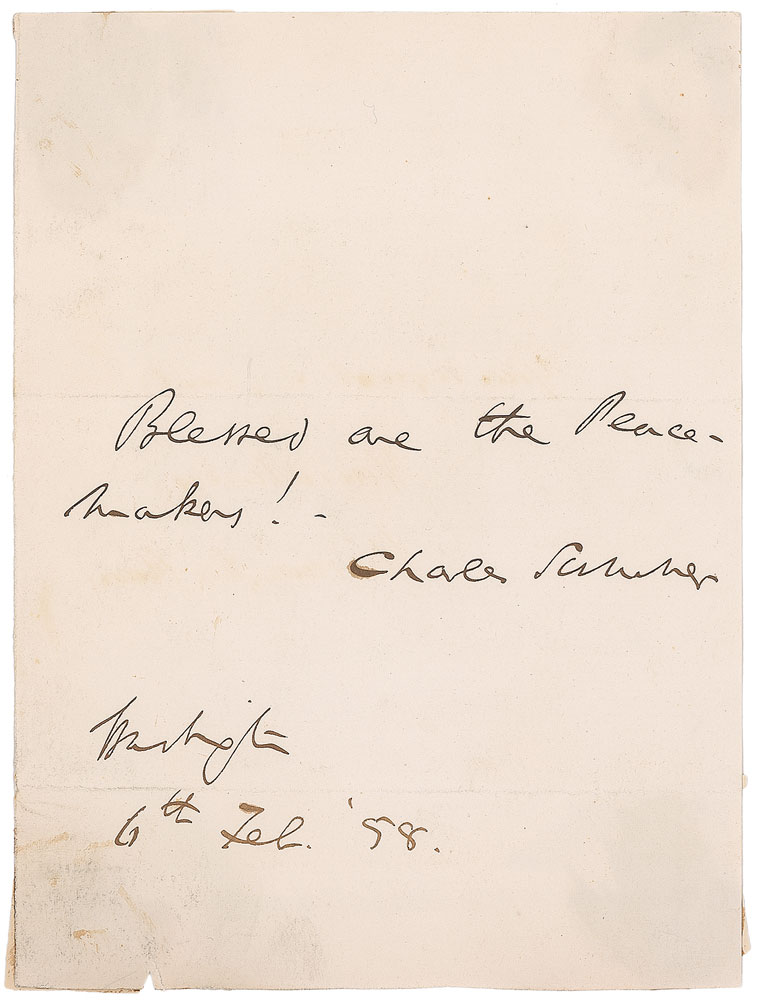 Blessed are the Peace-
makers! -
Charles Sumner
Washington
6th Feb. '58.